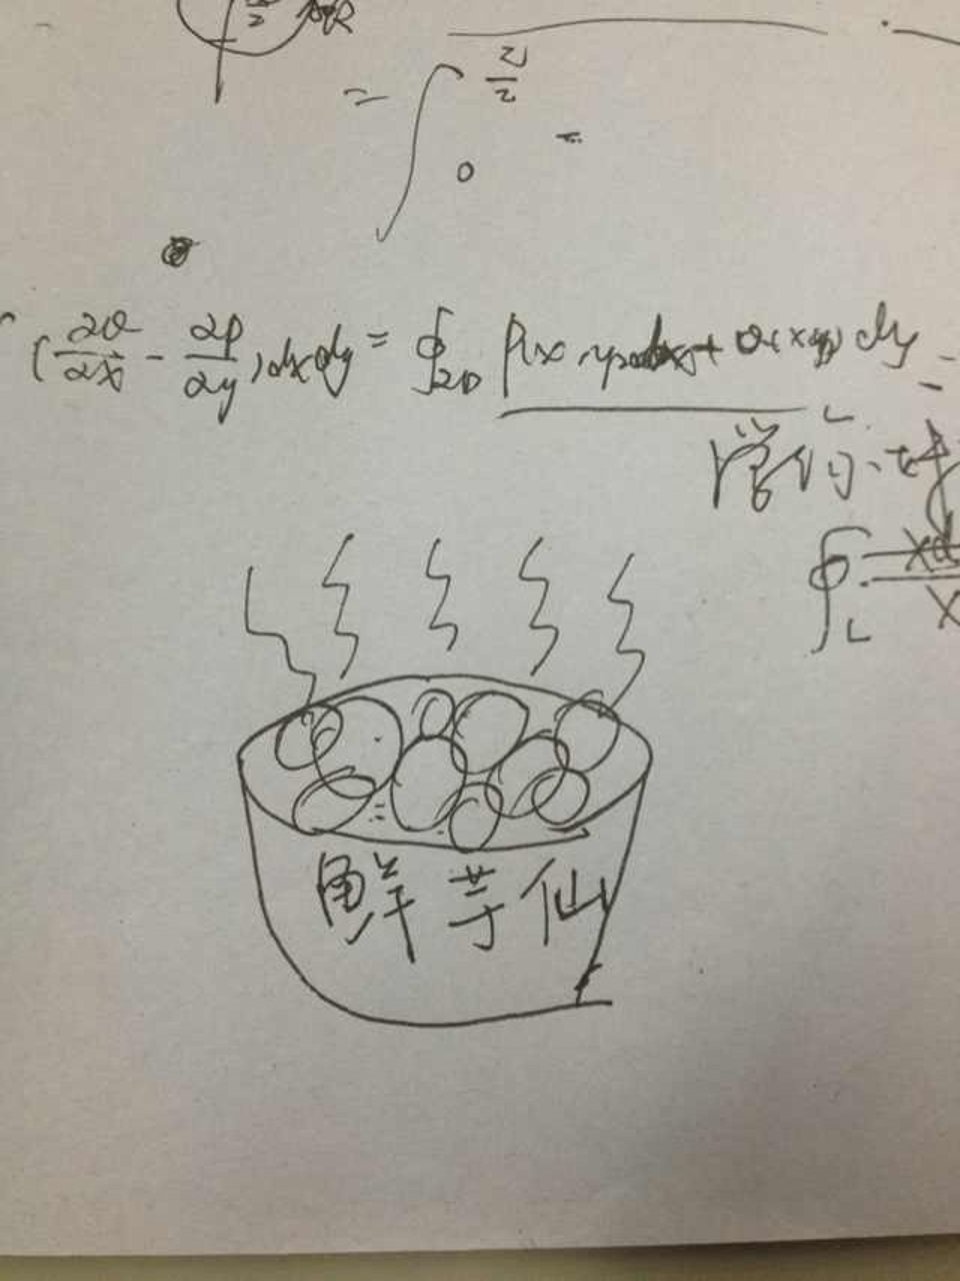 = ∫ 0 π/2 =
(∂Q/∂x - ∂P/∂y)dxdy = ∮∂D P(x,y)dx + Q(x,y)dy
∮L xd
x
鲜芋仙